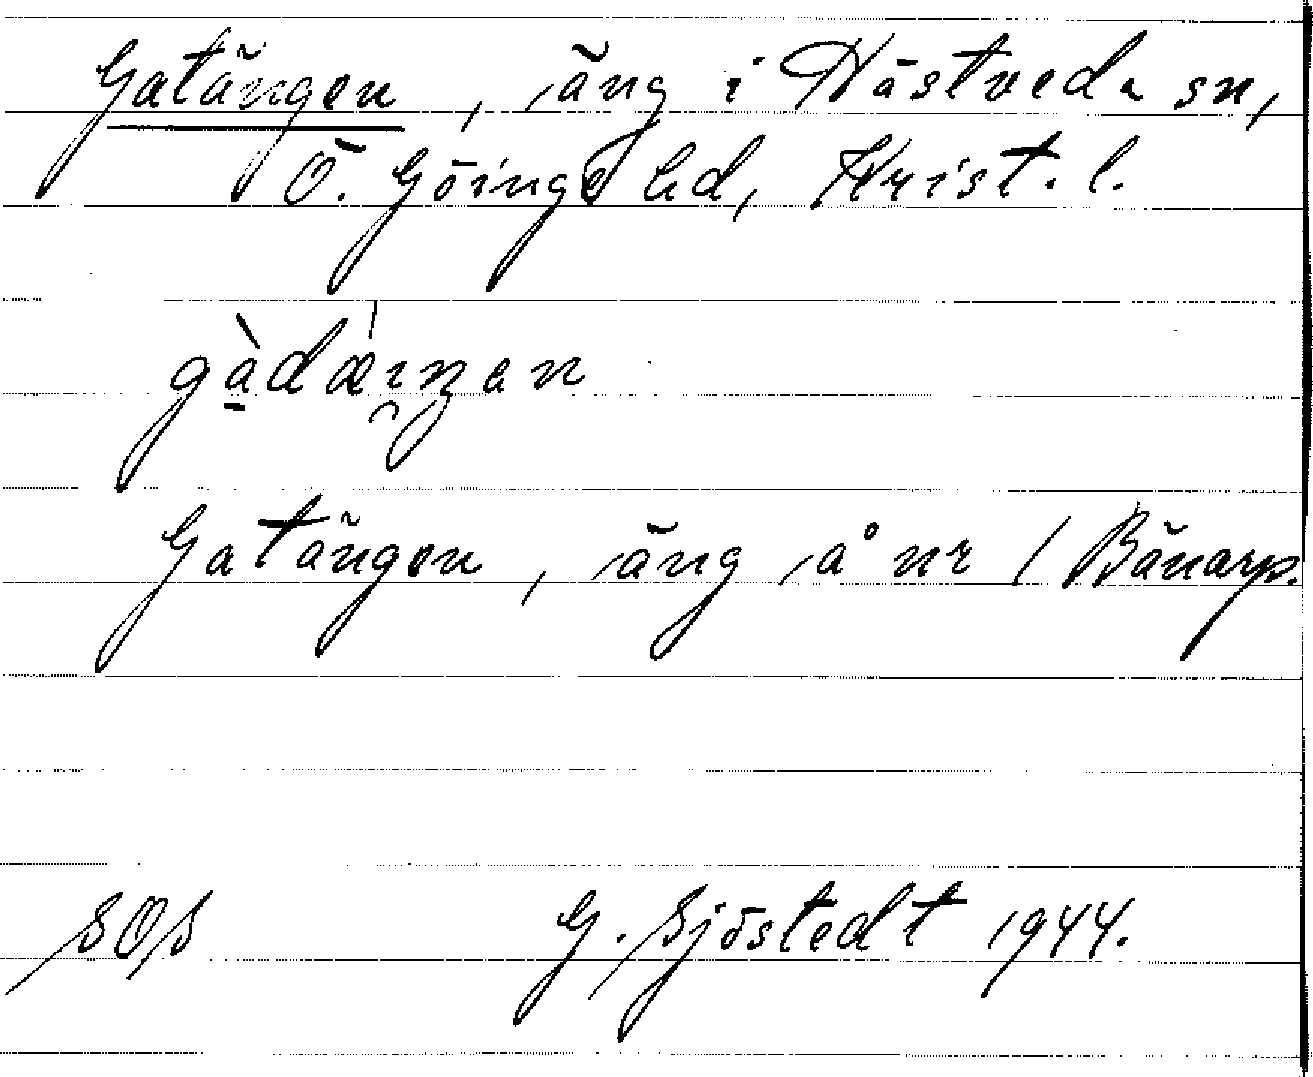 Gatängen, äng i Hästveda sn,
Ö. Göinge hd, Krist. l.
gàdæıŋen
Gatängen, äng å nr 1 Bånarp.
SOS G. Sjöstedt 1944.